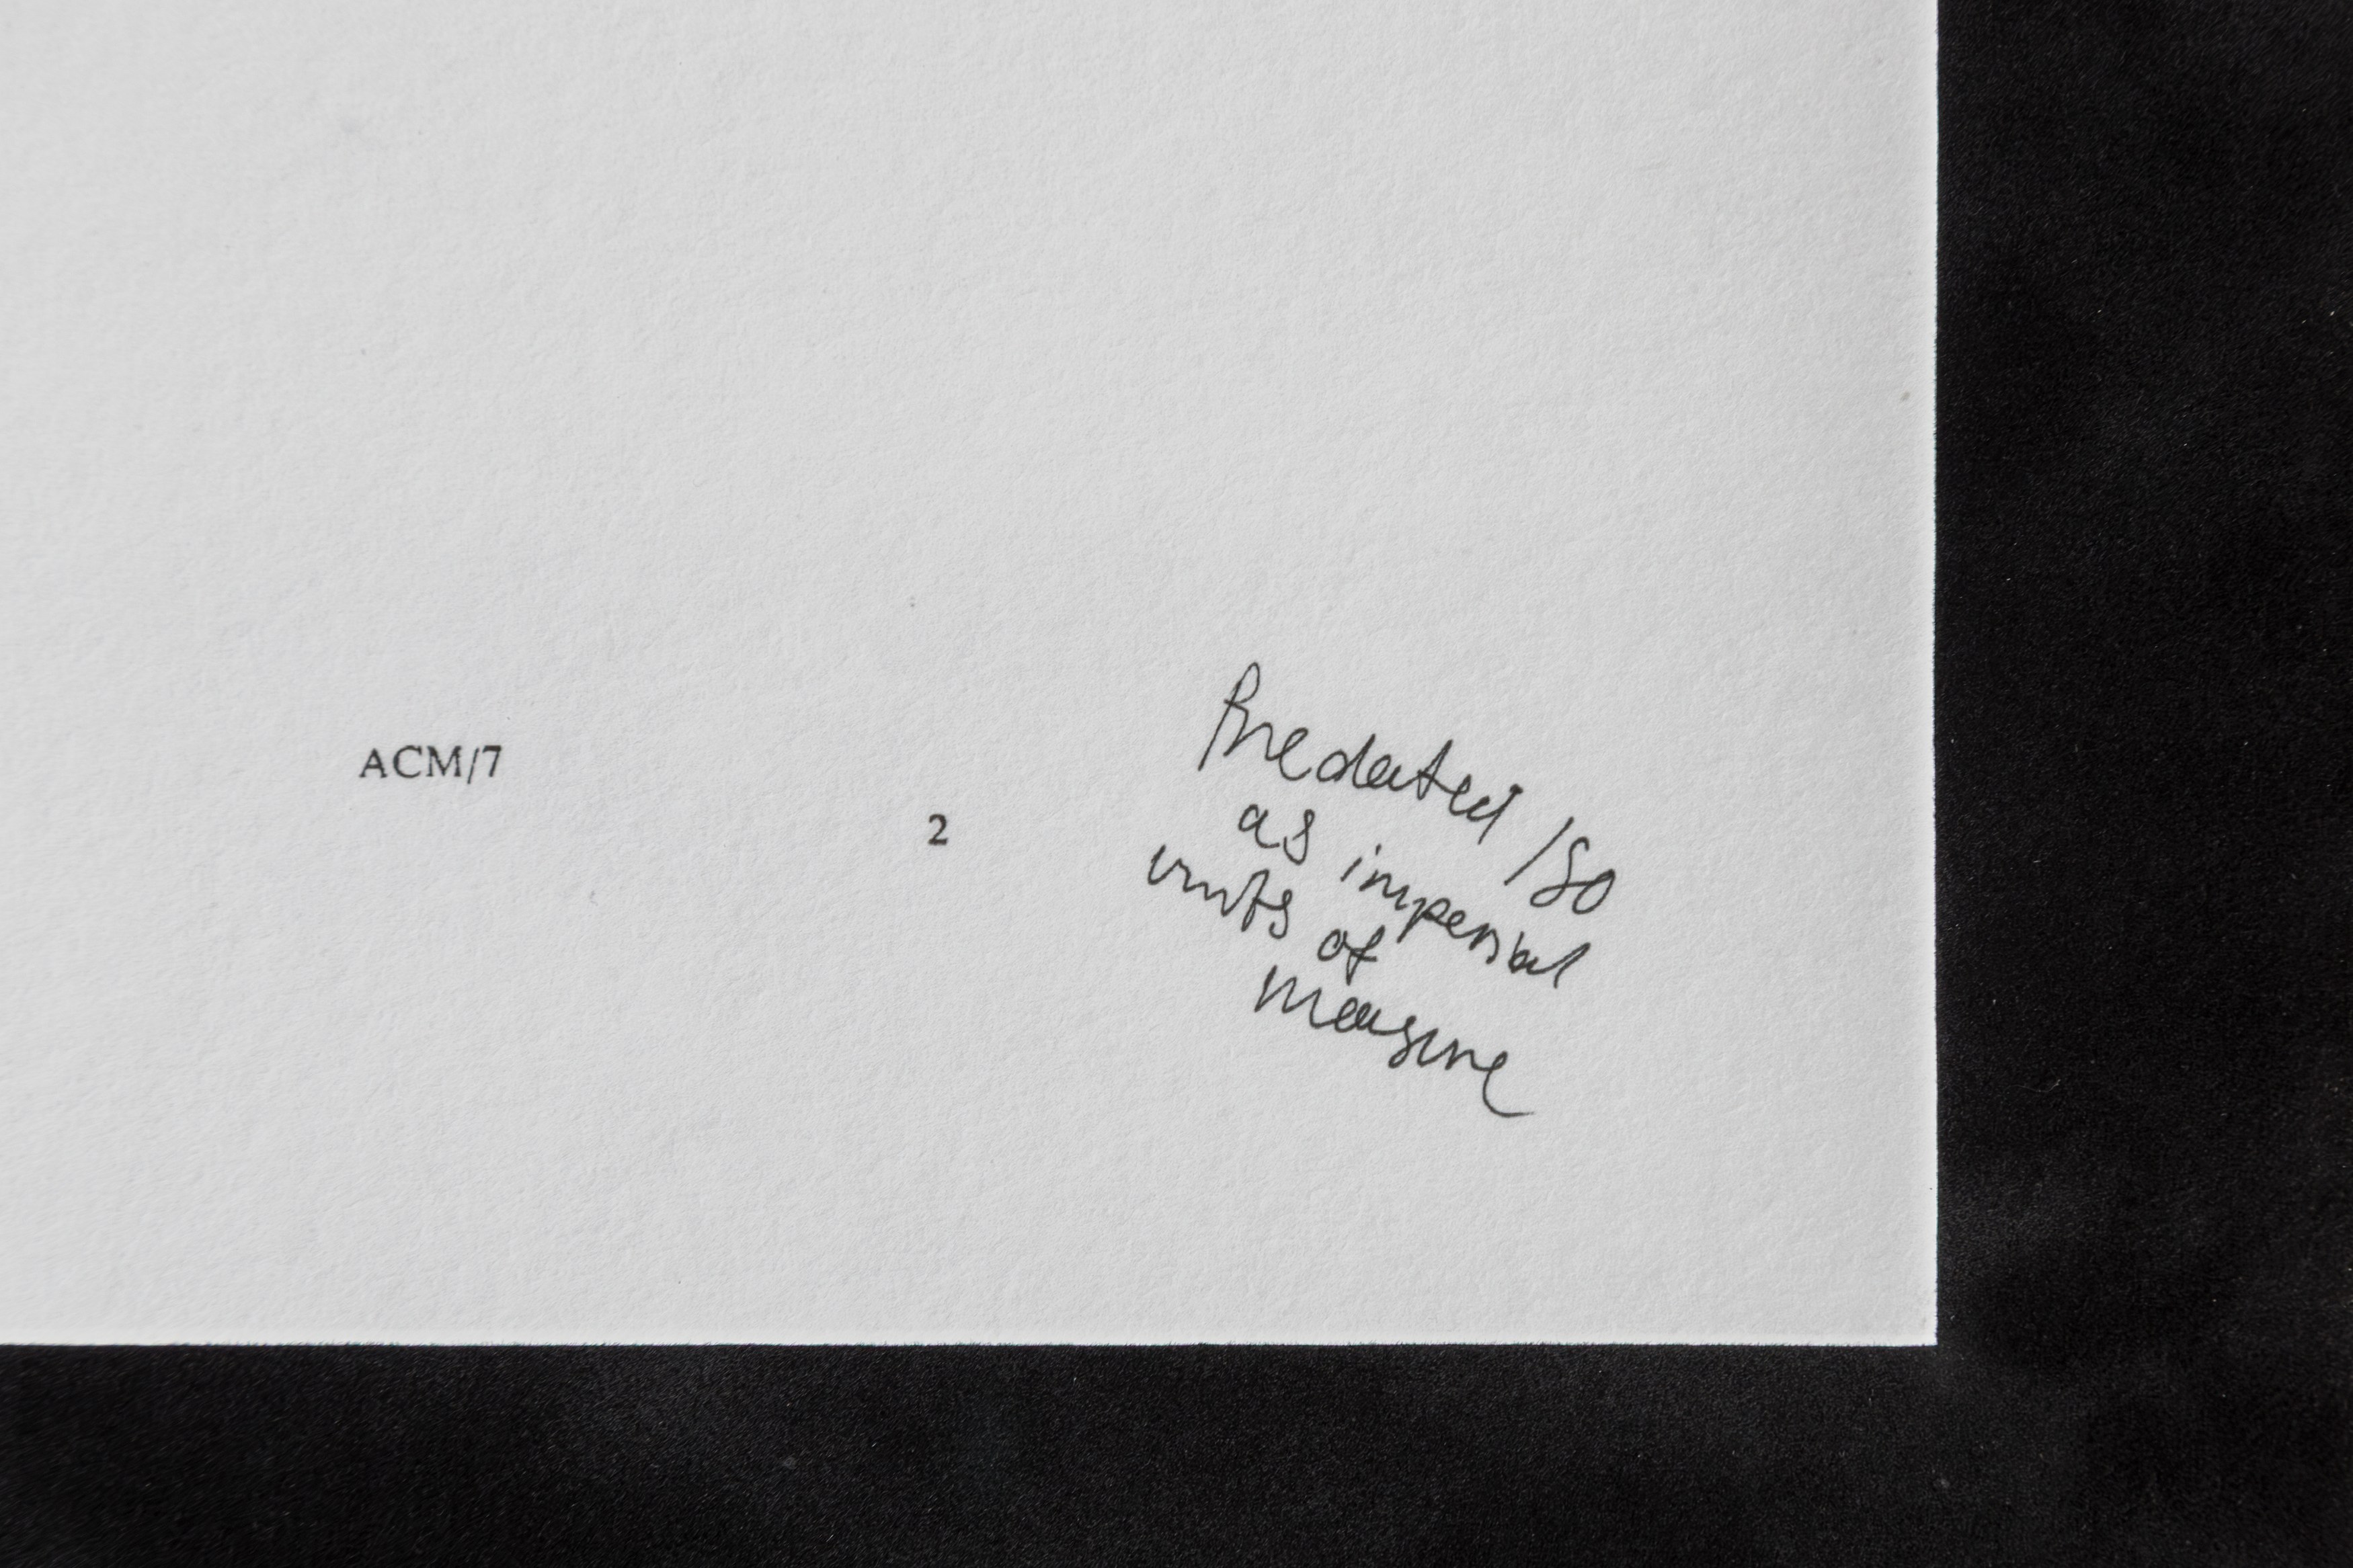 ACM/7
2
Predated ISO
as imperial
units of
measure